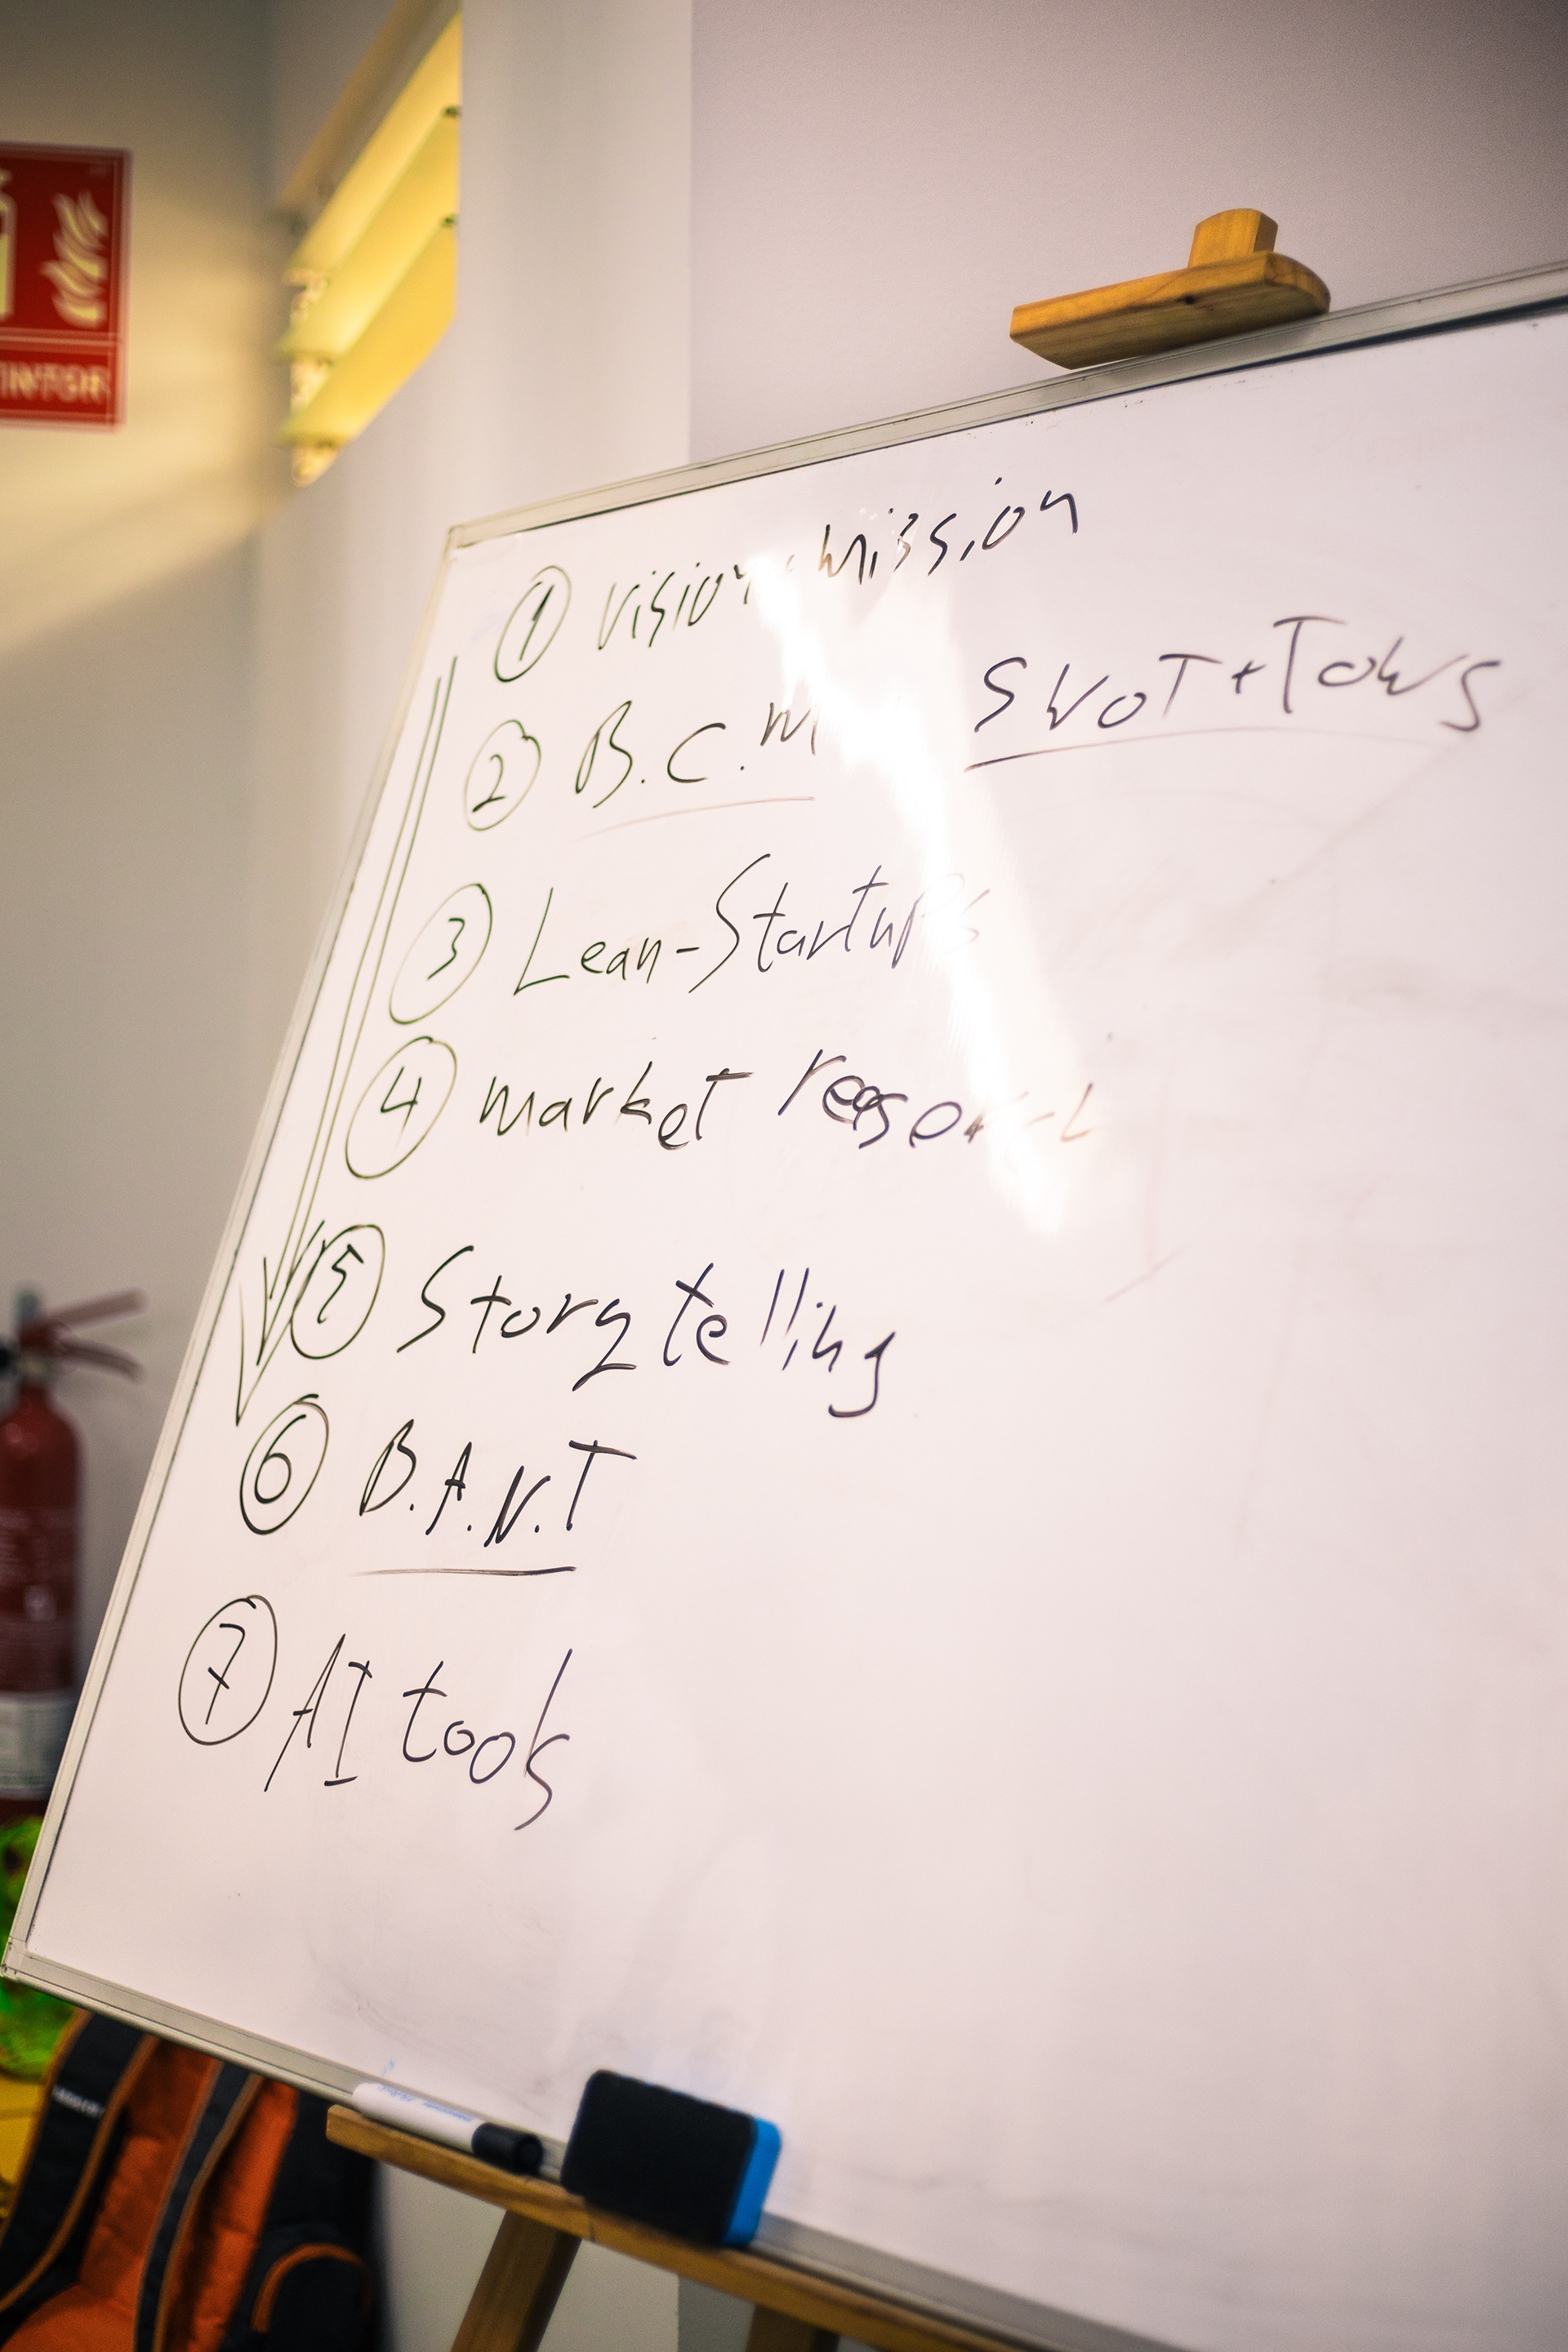 TINTOR
① Vision + Mission
② B.C.M SWOT + TOWS
③ Lean-Startups
④ market
⑤ Storytelling
⑥ B.A.N.T
⑦ AI tools